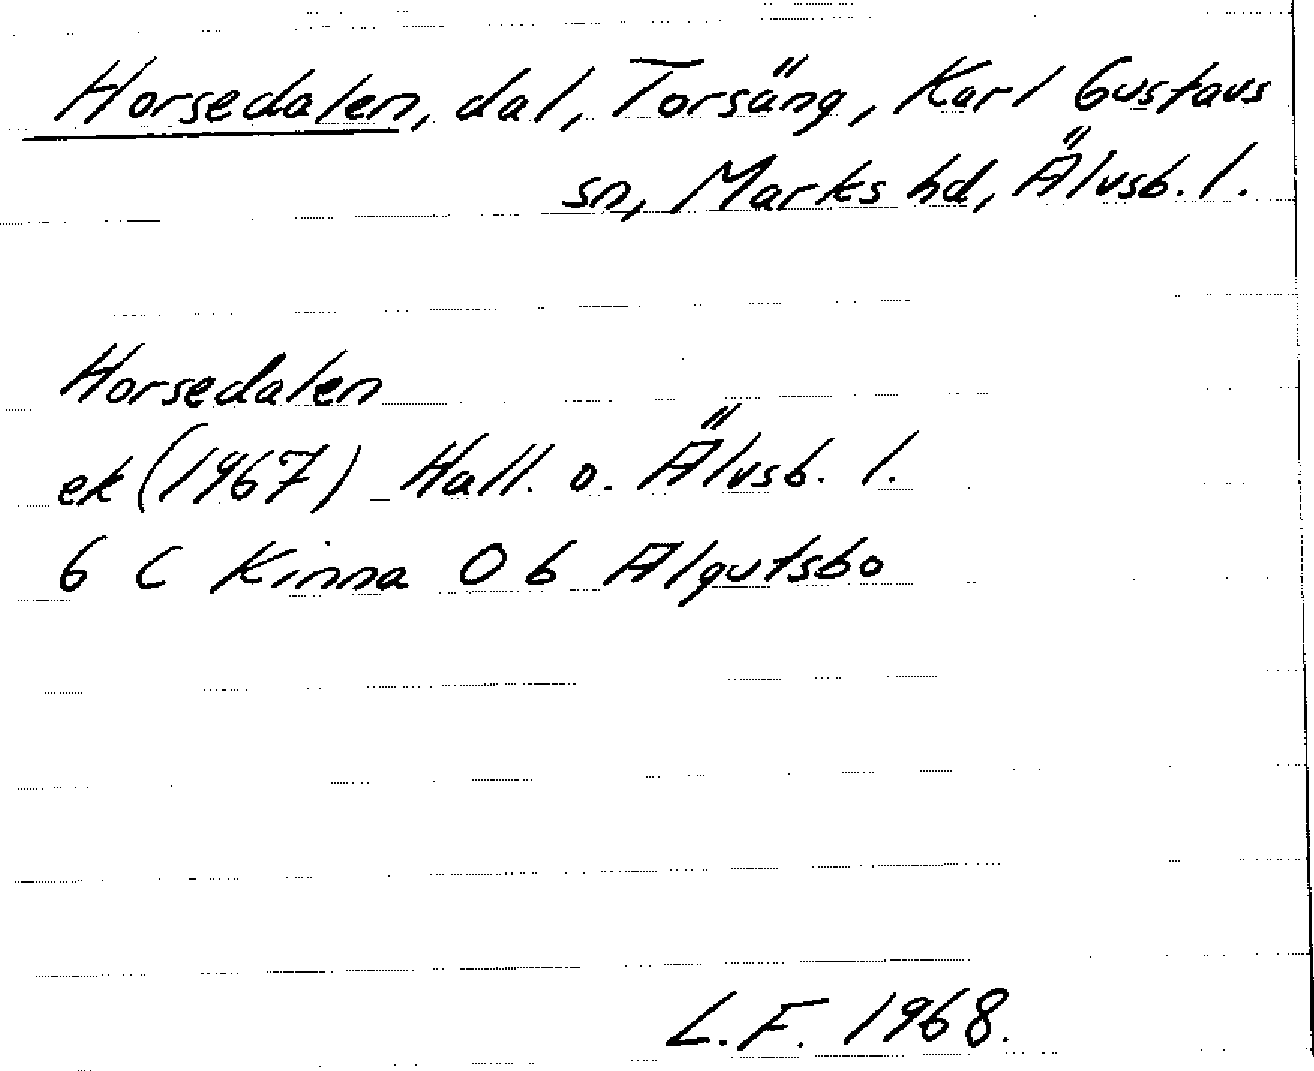 Horsedalen, dal, Torsäng, Karl Gustavs
sn, Marks hd, Älvsb. l.
Horsedalen
ek (1967) Hall. o. Älvsb. l.
6 C Kinna 0 b Algutsbo
L.F. 1968.